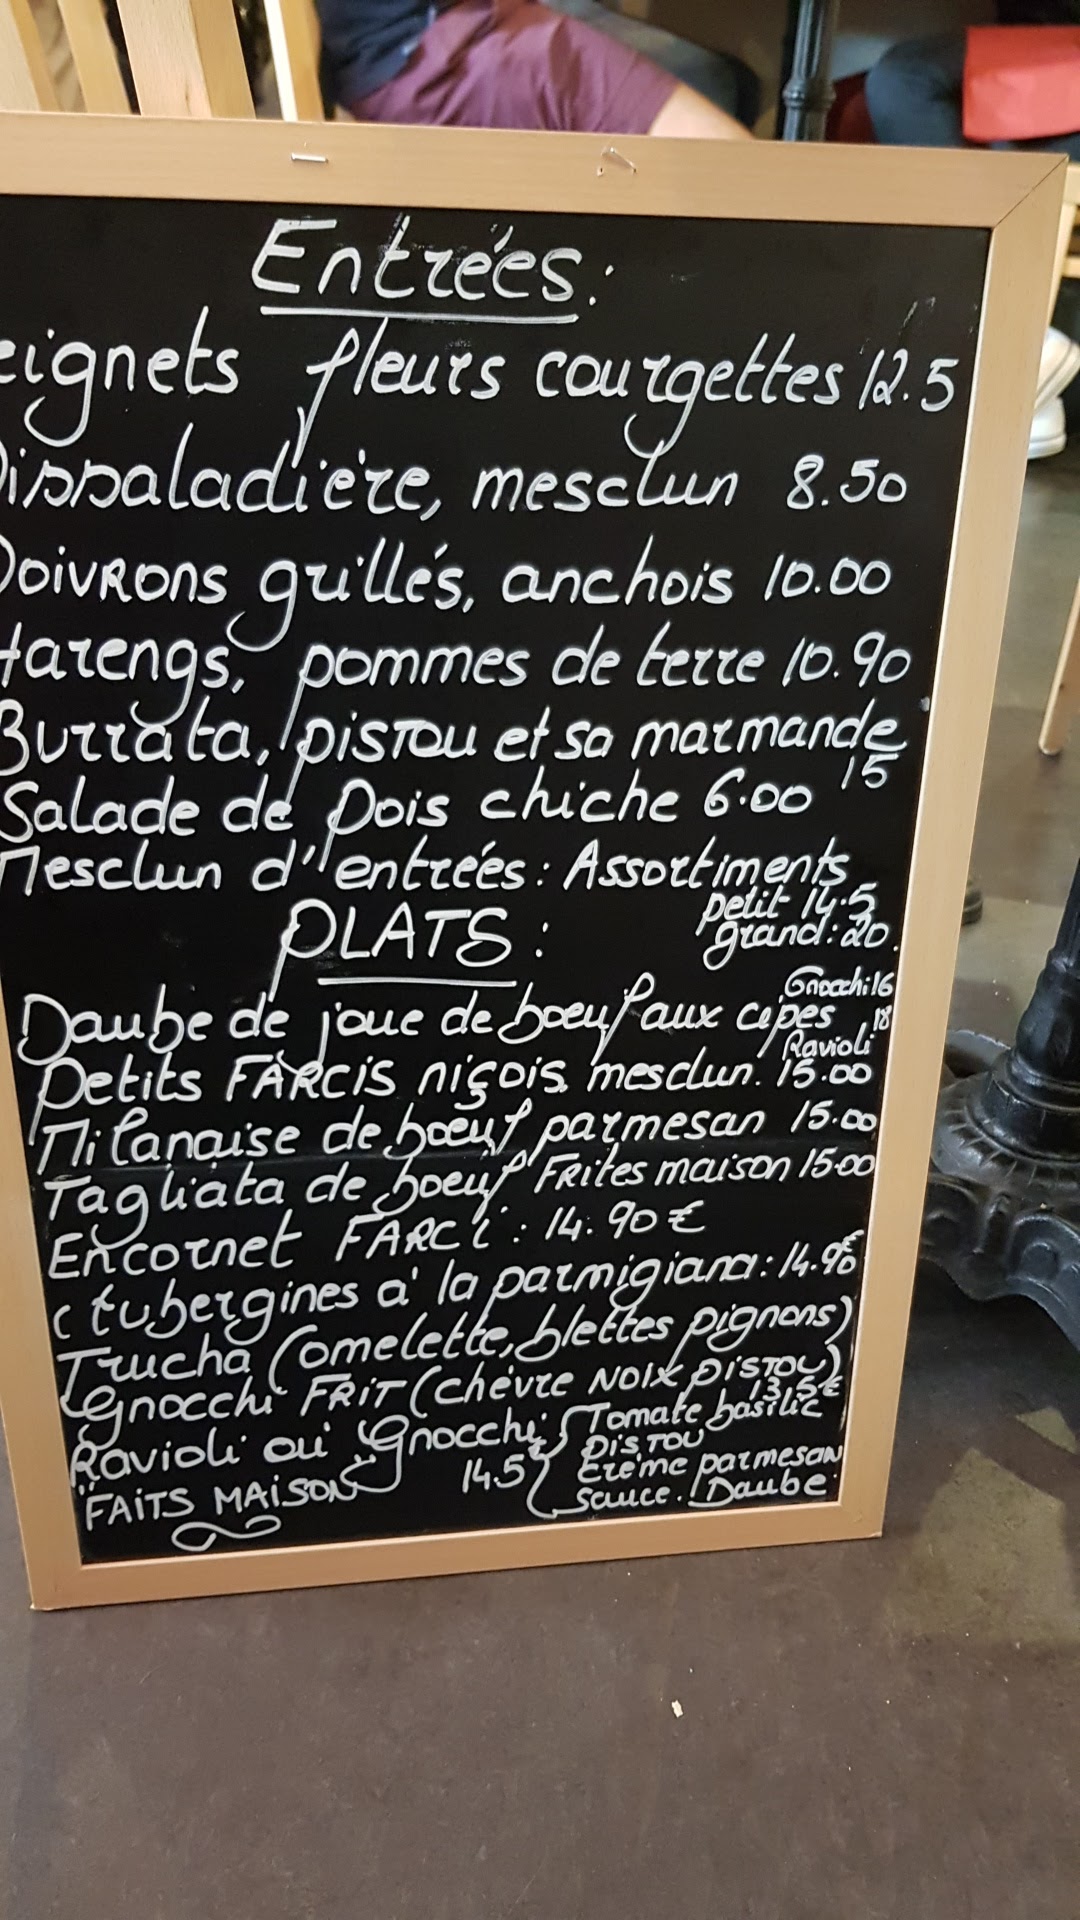 Entrées:
eignets fleurs courgettes 12.5
Pissaladière, mesclun 8.50
Poivrons grillés, anchois 10.00
Harengs, pommes de terre 10.90
Burrata, pistou et sa marmande
15
Salade de Pois chiche 6.00
Mesclun d'entrées: Assortiments
petit 14.5
grand: 20.
PLATS:
Gnocchi 16
Daube de joue de boeuf aux cèpes 18
Ravioli
Petits FARCIS niçois mesclun. 15.00
Milanaise de boeuf parmesan 15.00
Tagliata de boeuf Frites maison 15.00
Encornet FARCi: 14.90€
Aubergines à la parmigiana: 14.90€
Trucha (omelette, blettes pignons)
Gnocchi FRIT (chèvre NOIX PISTOU)
13,5€
Ravioli ou Gnocchi
14.5
Tomate basilic
PISTOU
Crème parmesan
Sauce. Daube
"FAITS MAISON"